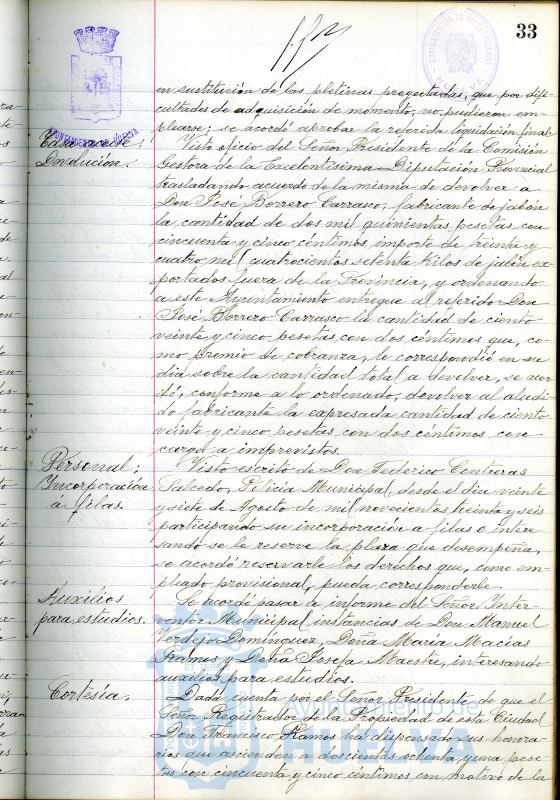 33
en sustitución de las pletinas proyectadas, que por difi-
cultades de adquisición de momento, no pudieron em-
plearse; se acordó aprobar la referida liquidación final.
Tasa aceite:
Devolución.
Visto oficio del Señor Presidente de la Comisión
Gestora de la Excelentísima Diputación Provincial
trasladando acuerdo de la misma de devolver a
Don José Borrero Carrasco, fabricante de jabón
la cantidad de dos mil quinientas pesetas, con
cincuenta y cinco céntimos, importe de treinta y
cuatro mil cuatrocientos setenta kilos de jabón ex-
portados fuera de la Provincia, y ordenando
a este Ayuntamiento entregue al referido Don
José Borrero Carrasco la cantidad de ciento
veinte y cinco pesetas con dos céntimos que, co-
mo premio de cobranza, le correspondió en su
dia sobre la cantidad total a devolver, se acor-
dó, conforme a lo ordenado, devolver al aludi-
do fabricante la expresada cantidad de ciento
veinte y cinco pesetas con dos centimos con
cargo a imprevistos.
Personal;
Incorporación
á filas.
Visto escrito de Don Federico Contreras
Salcedo, Policía Municipal desde el dia veinte
y siete de Agosto de mil novecientos treinta y seis
participando su incorporación a filas e intere-
sando se le reserve la plaza que desempeña,
se acordó reservarle los derechos que, como em-
pleado provisional, pueda corresponderle.
Auxilios
para estudios.
Se acordó pasar a informe del Señor Inter-
ventor Municipal instancias de Don Manuel
Verdejo Domínguez, Doña María Macías
Ramos y Doña Josefa Maestre, interesando
auxilios para estudios.
Cortesía.
Dada cuenta por el Señor Presidente de que el
Señor Registrador de la Propiedad de esta Ciudad
Don Francisco Ramos ha dispensado sus honora-
rios que ascienden a doscientas ochenta y una pese-
tas con cincuenta y cinco céntimos con motivo de la
Ayuntamiento de
HUELVA